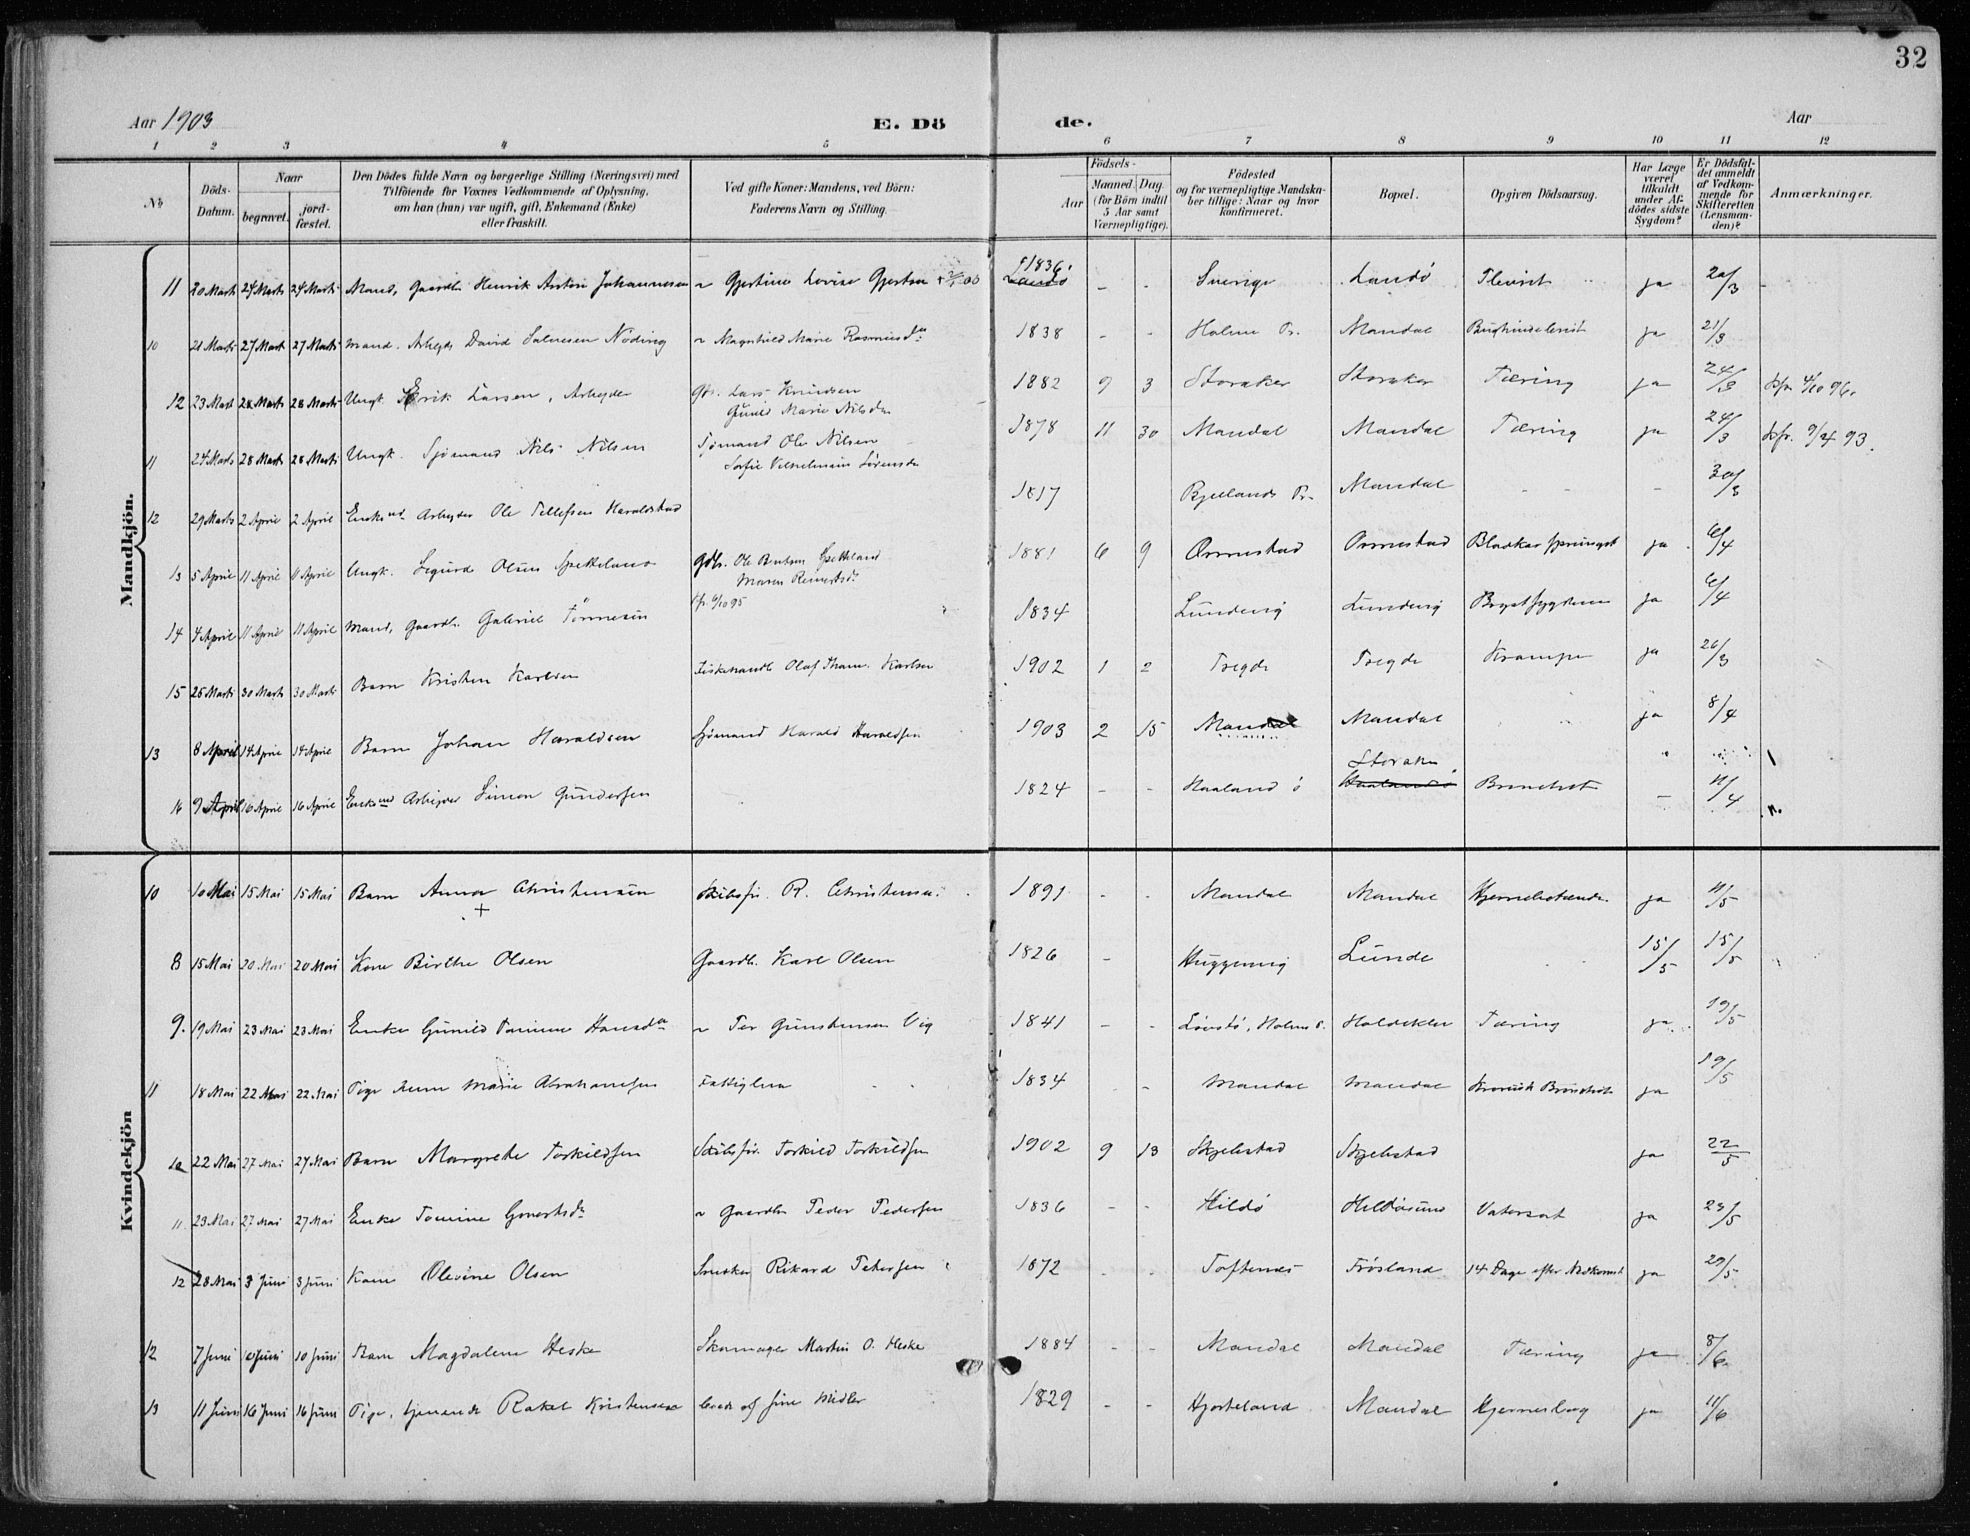 32
Aar 1903 E. Dö de. Aar
1 2 3 4 5 6 7 8 9 10 11 12
№ Döds-Datum. Naar begravet. jordfæstet. Den Dödes fulde Navn og borgerlige Stilling (Næringsvei) med Tilföiende for Voxnes Vedkommende af Oplysning, om han (hun) var ugift, gift, Enkemand (Enke) eller fraskilt. Ved gifte Koner: Mandens, ved Börn: Faderens Navn og Stilling. Födsels- Aar Maaned. Dag. (for Börn indtil 5 Aar samt Værnepligtige). Födested og for værnepligtige Mandskaber tillige: Naar og hvor konfirmeret. Bopæl. Opgiven Dödsaarsag. Har Læge været tilkaldt under Afdödes sidste Sygdom? Er Dödsfaldet anmeldt af Vedkommende for Skifteretten (Lensmanden)? Anmærkninger.
Mandkjön.
11 20 Marts 24 Marts 24 Marts Mand, Gaardb. Henrik Anton Johannesen ~ Gjertine Lovise 1836 - - Sverige Landö Plevrit ja 20/3 -
10 21 Marts 27 Marts 27 Marts Mand. Arbeyd. David Salvesen Nöding ~ Magnhild Marie Rasmusd. 1838 - - Holme Pr. Mandal ja 21/3
12 23 Marts 28 Marts 28 Marts Ungk. Erik Larsen, Arbeyder Gb. Lars Knudsen 1882 9 3 Storaker Storaker Tæring ja 24/3 kfr. 4/10 96.
Gunild Marie Nilsdr.
11 24 Marts 28 Marts 28 Marts Ungk. Sjömand Nils Nilsen Sjömand Ole Nilsen 1878 11 30 Mandal Mandal Tæring ja 24/3 kfr. 9/4 93.
Sofie Vilhelmine Sörensdr.
12 29 Marts 2 April 2 April Enkemd. Arbeyder Ole Tellefsen Haraldstad 1817 Bjellands Pr. Mandal - - - 30/3
13 5 April 11 April 11 April Ungk. Sigurd Olsen Spetteland Gdb. Ole Spetteland 1881 6 9 Ormestad Ormestad ja 6/4
Maren Reinertsdr.
kfr. 6/10 95
14 4 April 11 April 11 April Mand, Gaardb. Gabriel Tönnesen 1834 Lundevig Lundevig Brystsygdom ja 6/4
15 25 Marts 30 Marts 30 Marts Barn Kristen Karlsen Fiskehandl. Olaf Karlsen 1902 1 2 Tregde Tregde Krampe ja 26/3
13 8 April 14 April 14 April Barn Johan Haraldsen Sjömand Harald Haraldsen 1903 2 15 Mandal Mandal ja 8/4
16 9 April 16 April 16 April Enkemd Arbeyder Simon Gundersen 1824 - - Haaland ö Storaker Bronchit - 11/4
Kvindekjön
10 10 Mai 15 Mai 15 Mai Barn Anna Christensen Skibsför. R. Christensen 1891 - - Mandal Mandal Hjernebetænd. ja 11/5
8 15 Mai 20 Mai 20 Mai Kone Birthe Olsen Gaardb. Karl Olsen 1826 - Lunde - - 15/5 15/5
9. 19 Mai 23 Mai 23 Mai Enke Gunild Tomine Hansdr ~ Per Gunstensen Vig 1841 - - Holme P. Tæring ja 19/5
11 18 Mai 22 Mai 22 Mai Pige Anne Marie Abrahamsen Fattiglem 1834 - Mandal Mandal Kronisk Bronchit ja 19/5
10 22 Mai 27 Mai 27 Mai Barn Margrethe Torkildsen Skibsför. Torkild Torkildsen 1902 9 13 Skjebstad Skjebstad ja 22/5
11. 23 Mai 27 Mai 27 Mai Enke Tomine ~ Gaardb. Peder Pedersen 1836 - - Hildö Hildösund Vatersot ja 23/5
12 28 Mai 3 Juni 3 Juni Kone Olevine Olsen Snedker Rikard Petersen 1872 - - Toftenes Frösland 14 Dage efter Nedkomst ja 29/5
12 7 Juni 10 Juni 10 Juni Barn Magdalene Heske Skomager Martin O. Heske 1884 - - Mandal Mandal Tæring ja 8/6
13 11 Juni 16 Juni 16 Juni Pige, tjenende Rakel Kristensen levede af sine Midler 1829 - - Hjorteland Mandal Hjerneslag ja 11/6